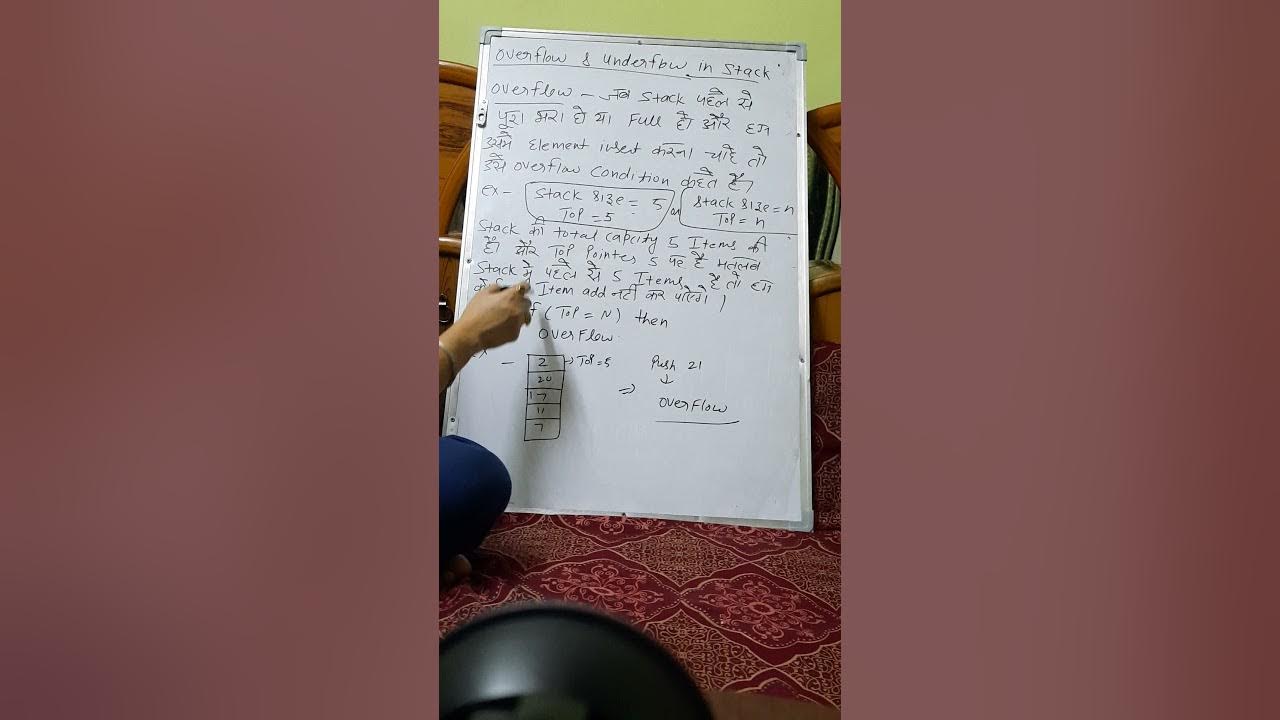 Overflow & Underflow in Stack
Overflow - जब Stack पहले से
पूरा भरा हो या Full हो और हम
उसमे Element insert करना चाहे तो
उसे Overflow Condition कहते हैं।
ex- Stack size = 5 or Stack size = n
TOP = 5 TOP = n
Stack की total Capcity 5 Items की
है। और TOP Pointer 5 पर है मतलब
Stack मे पहले से 5 Items है तो हम
Item add नही कर पायेंगे।
(TOP = N) then
OverFlow.
- 2 → TOP = 5 Push 21
20 ↓
17 ⇒ OverFlow
11
7